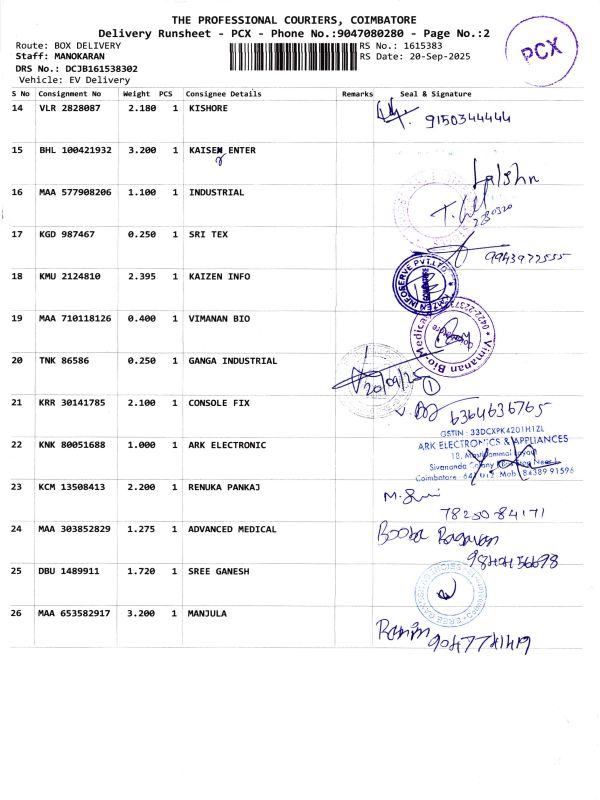 THE PROFESSIONAL COURIERS, COIMBATORE
Delivery Runsheet - PCX - Phone No.:9047080280 - Page No.:2
Route: BOX DELIVERY
RS No.: 1615383
PCX
Staff: MANOKARAN
RS Date: 20-Sep-2025
DRS No.: DCJB161538302
Vehicle: EV Delivery
S No Consignment No Weight PCS Consignee Details Remarks Seal & Signature
14 VLR 2828087 2.180 1 KISHORE
9150344444
15 BHL 100421932 3.200 1 KAISEN ENTER
16 MAA 577908206 1.100 1 INDUSTRIAL
17 KGD 987467 0.250 1 SRI TEX
9943977555
18 KMU 2124810 2.395 1 KAIZEN INFO
KAIZEN INFOSERVE PVT.LTD
19 MAA 710118126 0.400 1 VIMANAN BIO
Vimanan Bio-Medical
20 TNK 86586 0.250 1 GANGA INDUSTRIAL
20/09/25 1
21 KRR 30141785 2.100 1 CONSOLE FIX
6364636765
22 KNK 80051688 1.000 1 ARK ELECTRONIC
GSTIN : 33DCXPK4201H1ZL
ARK ELECTRONICS & APPLIANCES
Sivananda Colony
Coimbatore
23 KCM 13508413 2.200 1 RENUKA PANKAJ
7825084171
24 MAA 303852829 1.275 1 ADVANCED MEDICAL
25 DBU 1489911 1.720 1 SREE GANESH
26 MAA 653582917 3.200 1 MANJULA